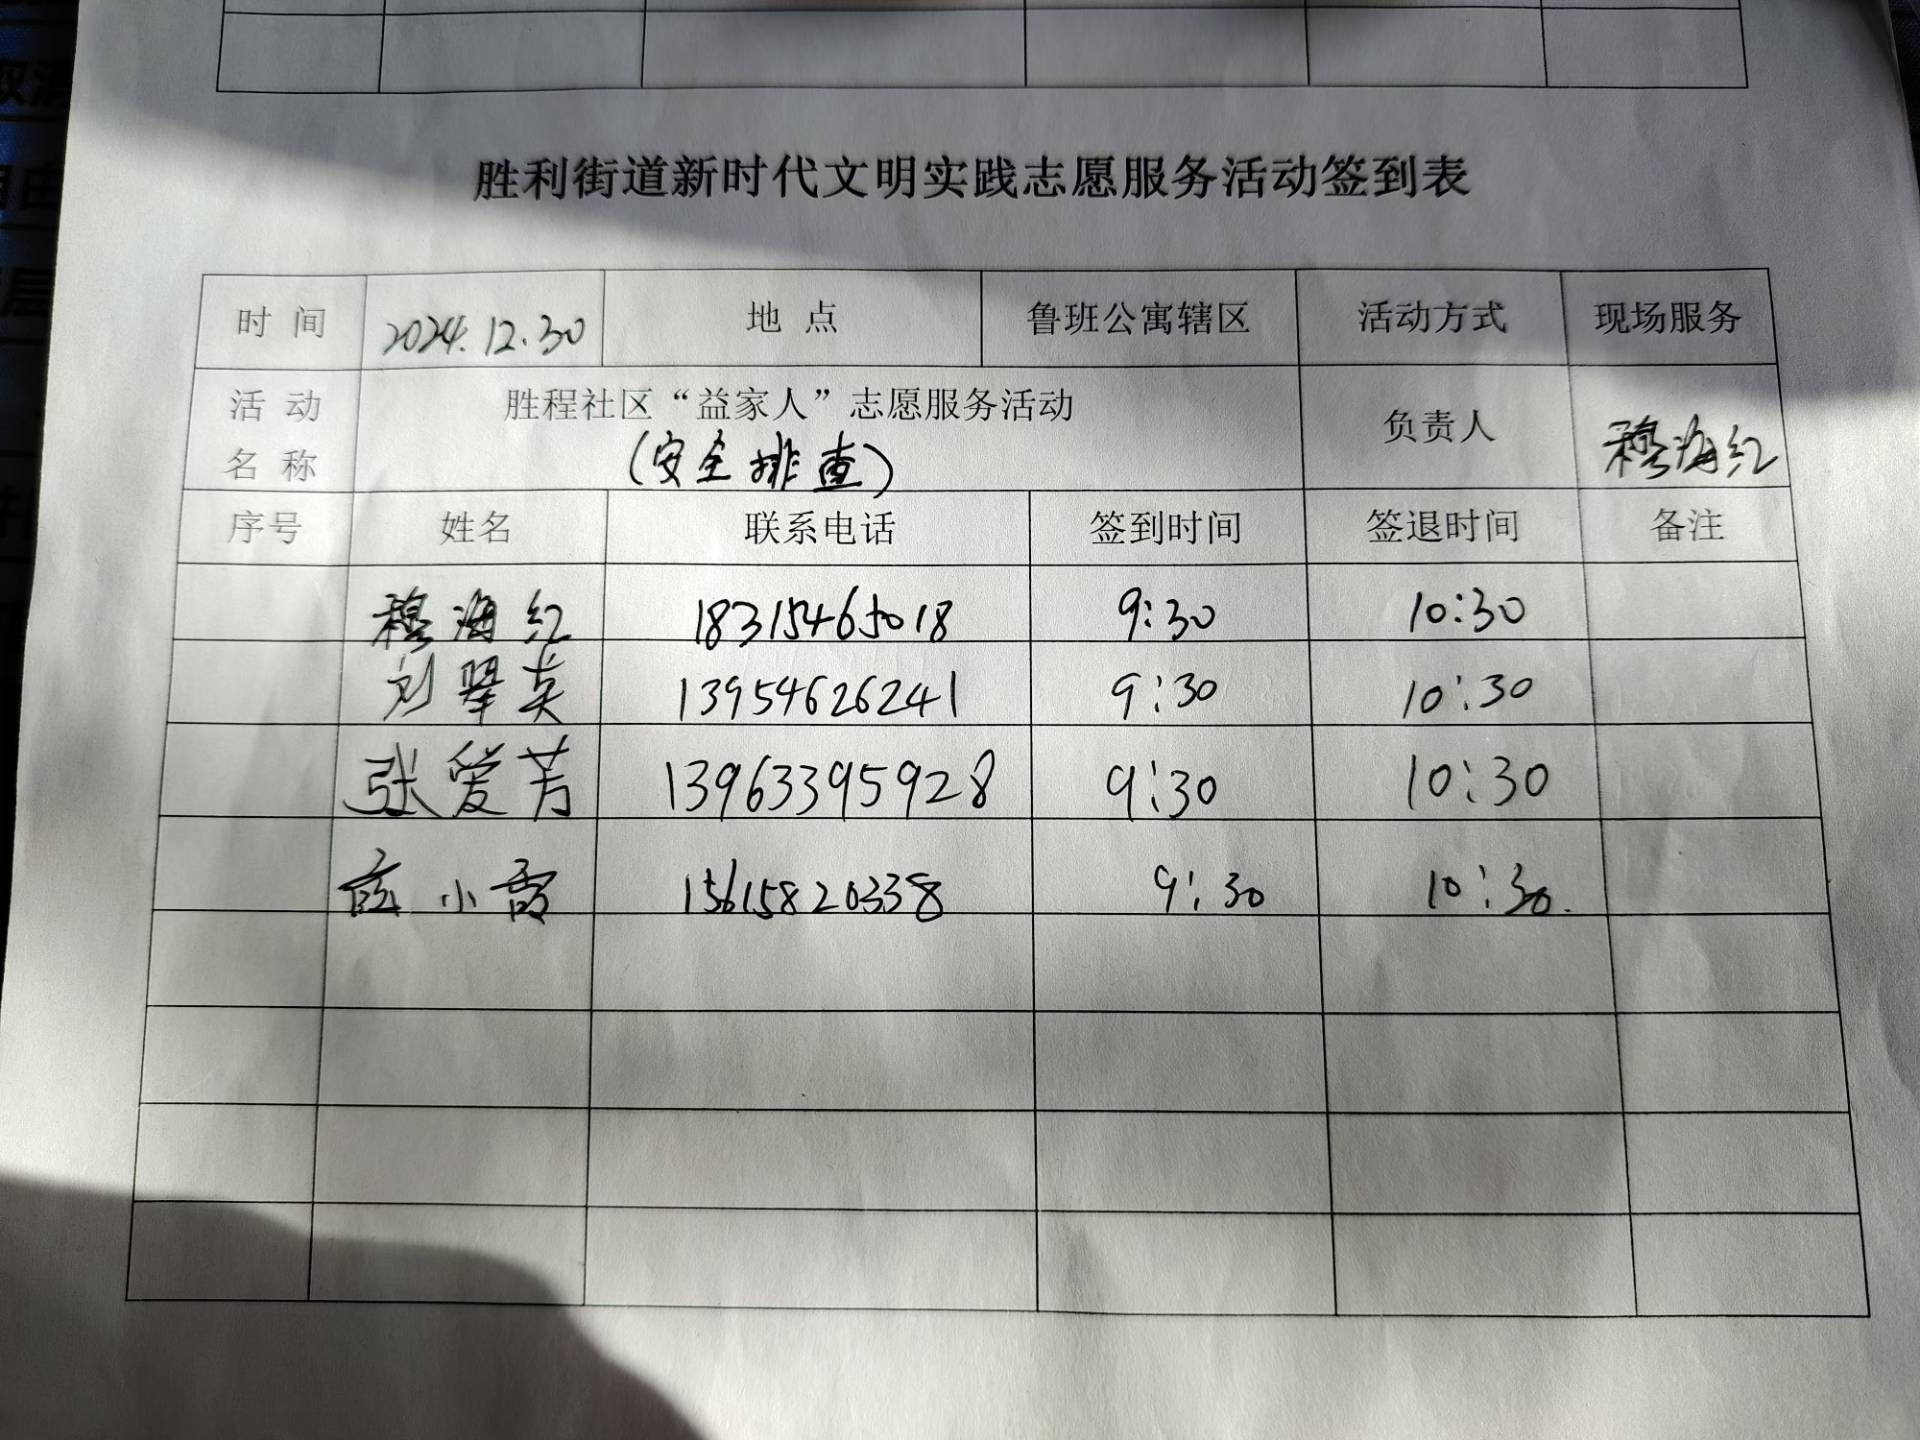 胜利街道新时代文明实践志愿服务活动签到表
时间 2024.12.30 地点 鲁班公寓辖区 活动方式 现场服务
活动名称 胜程社区“益家人”志愿服务活动 负责人 穆海红
(安全排查)
序号 姓名 联系电话 签到时间 签退时间 备注
穆海红 18315465018 9:30 10:30
刘翠英 13954626241 9:30 10:30
张爱芳 13963395928 9:30 10:30
小霞 15615820338 9:30 10:30.